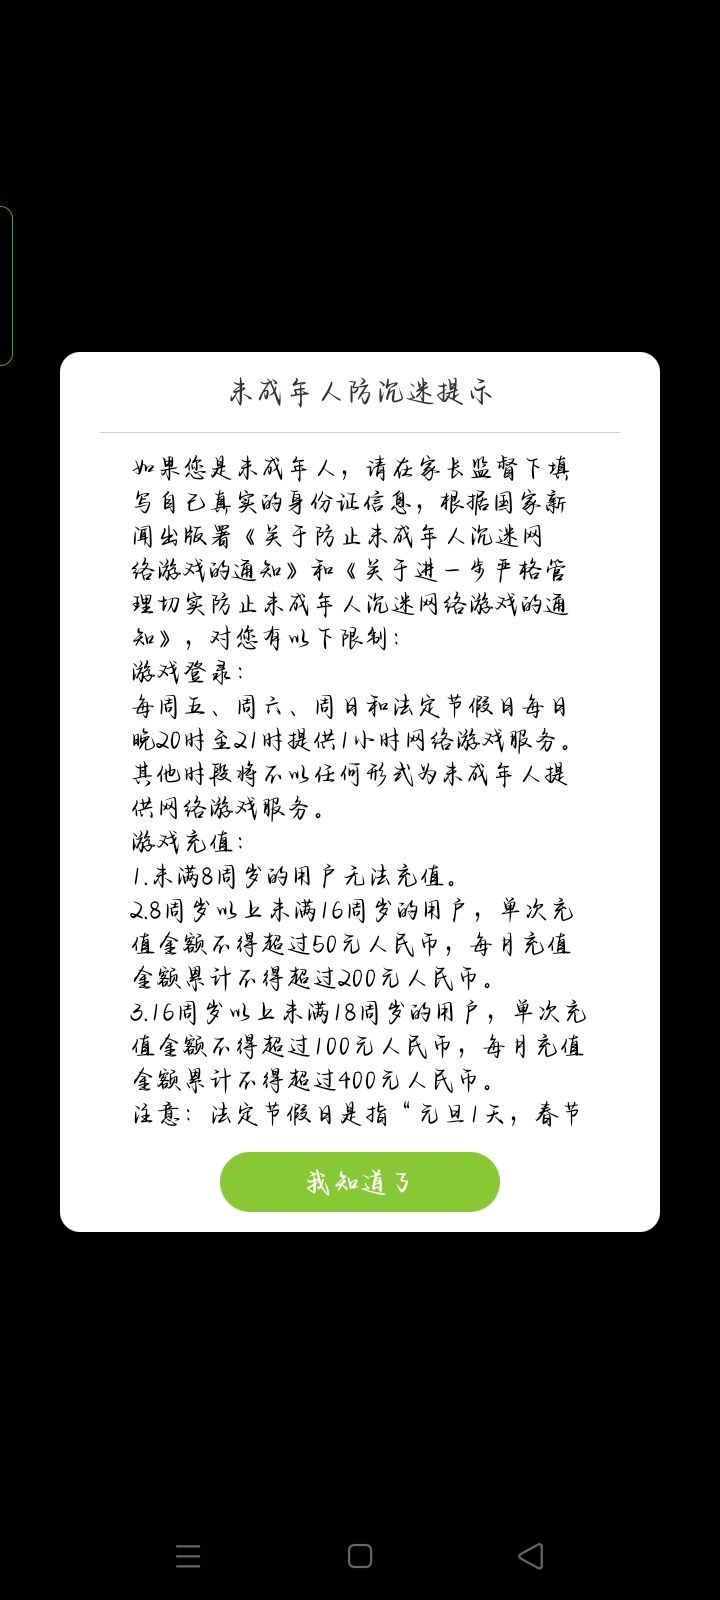 未成年人防沉迷提示
如果您是未成年人，请在家长监督下填
写自己真实的身份证信息，根据国家新
闻出版署《关于防止未成年人沉迷网
络游戏的通知》和《关于进一步严格管
理切实防止未成年人沉迷网络游戏的通
知》，对您有以下限制：
游戏登录：
每周五、周六、周日和法定节假日每日
晚20时至21时提供1小时网络游戏服务。
其他时段将不以任何形式为未成年人提
供网络游戏服务。
游戏充值：
1.未满8周岁的用户无法充值。
2.8周岁以上未满16周岁的用户，单次充
值金额不得超过50元人民币，每月充值
金额累计不得超过200元人民币。
3.16周岁以上未满18周岁的用户，单次充
值金额不得超过100元人民币，每月充值
金额累计不得超过400元人民币。
注意：法定节假日是指“元旦1天，春节
我知道了